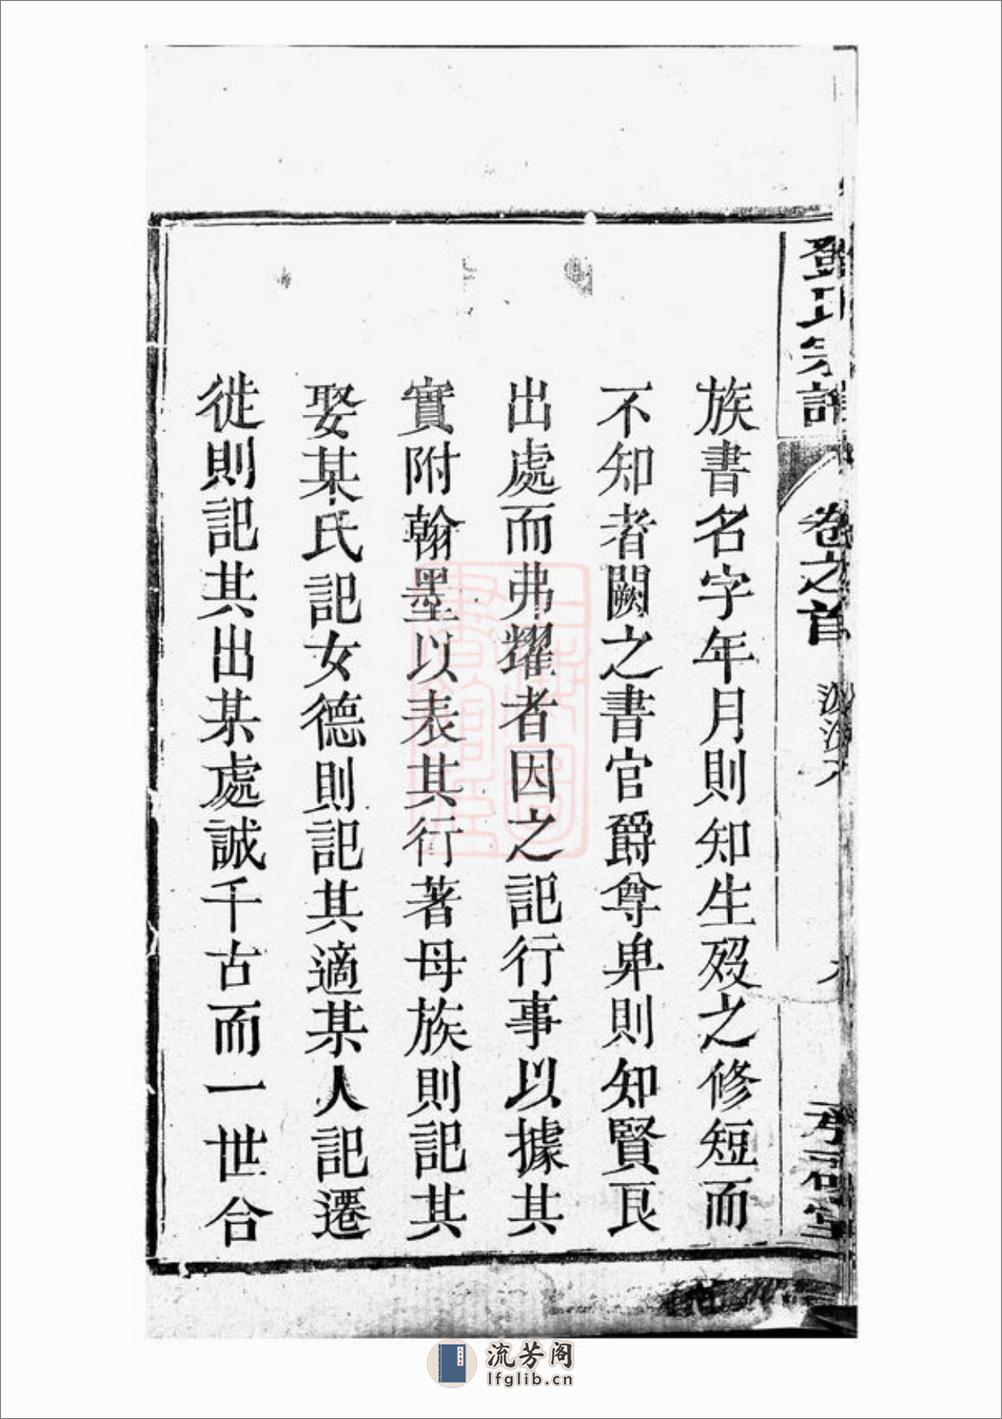 鄧氏宗譜 卷之首
族書名字年月則知生歿之修短而
不知者闕之書官爵尊卑則知賢良
出處而弗耀者因之記行事以據其
實附翰墨以表其行著母族則記其
娶某氏記女德則記其適某人記遷
徙則記其出某處誠千古而一世合
流芳阁
lfglib.cn